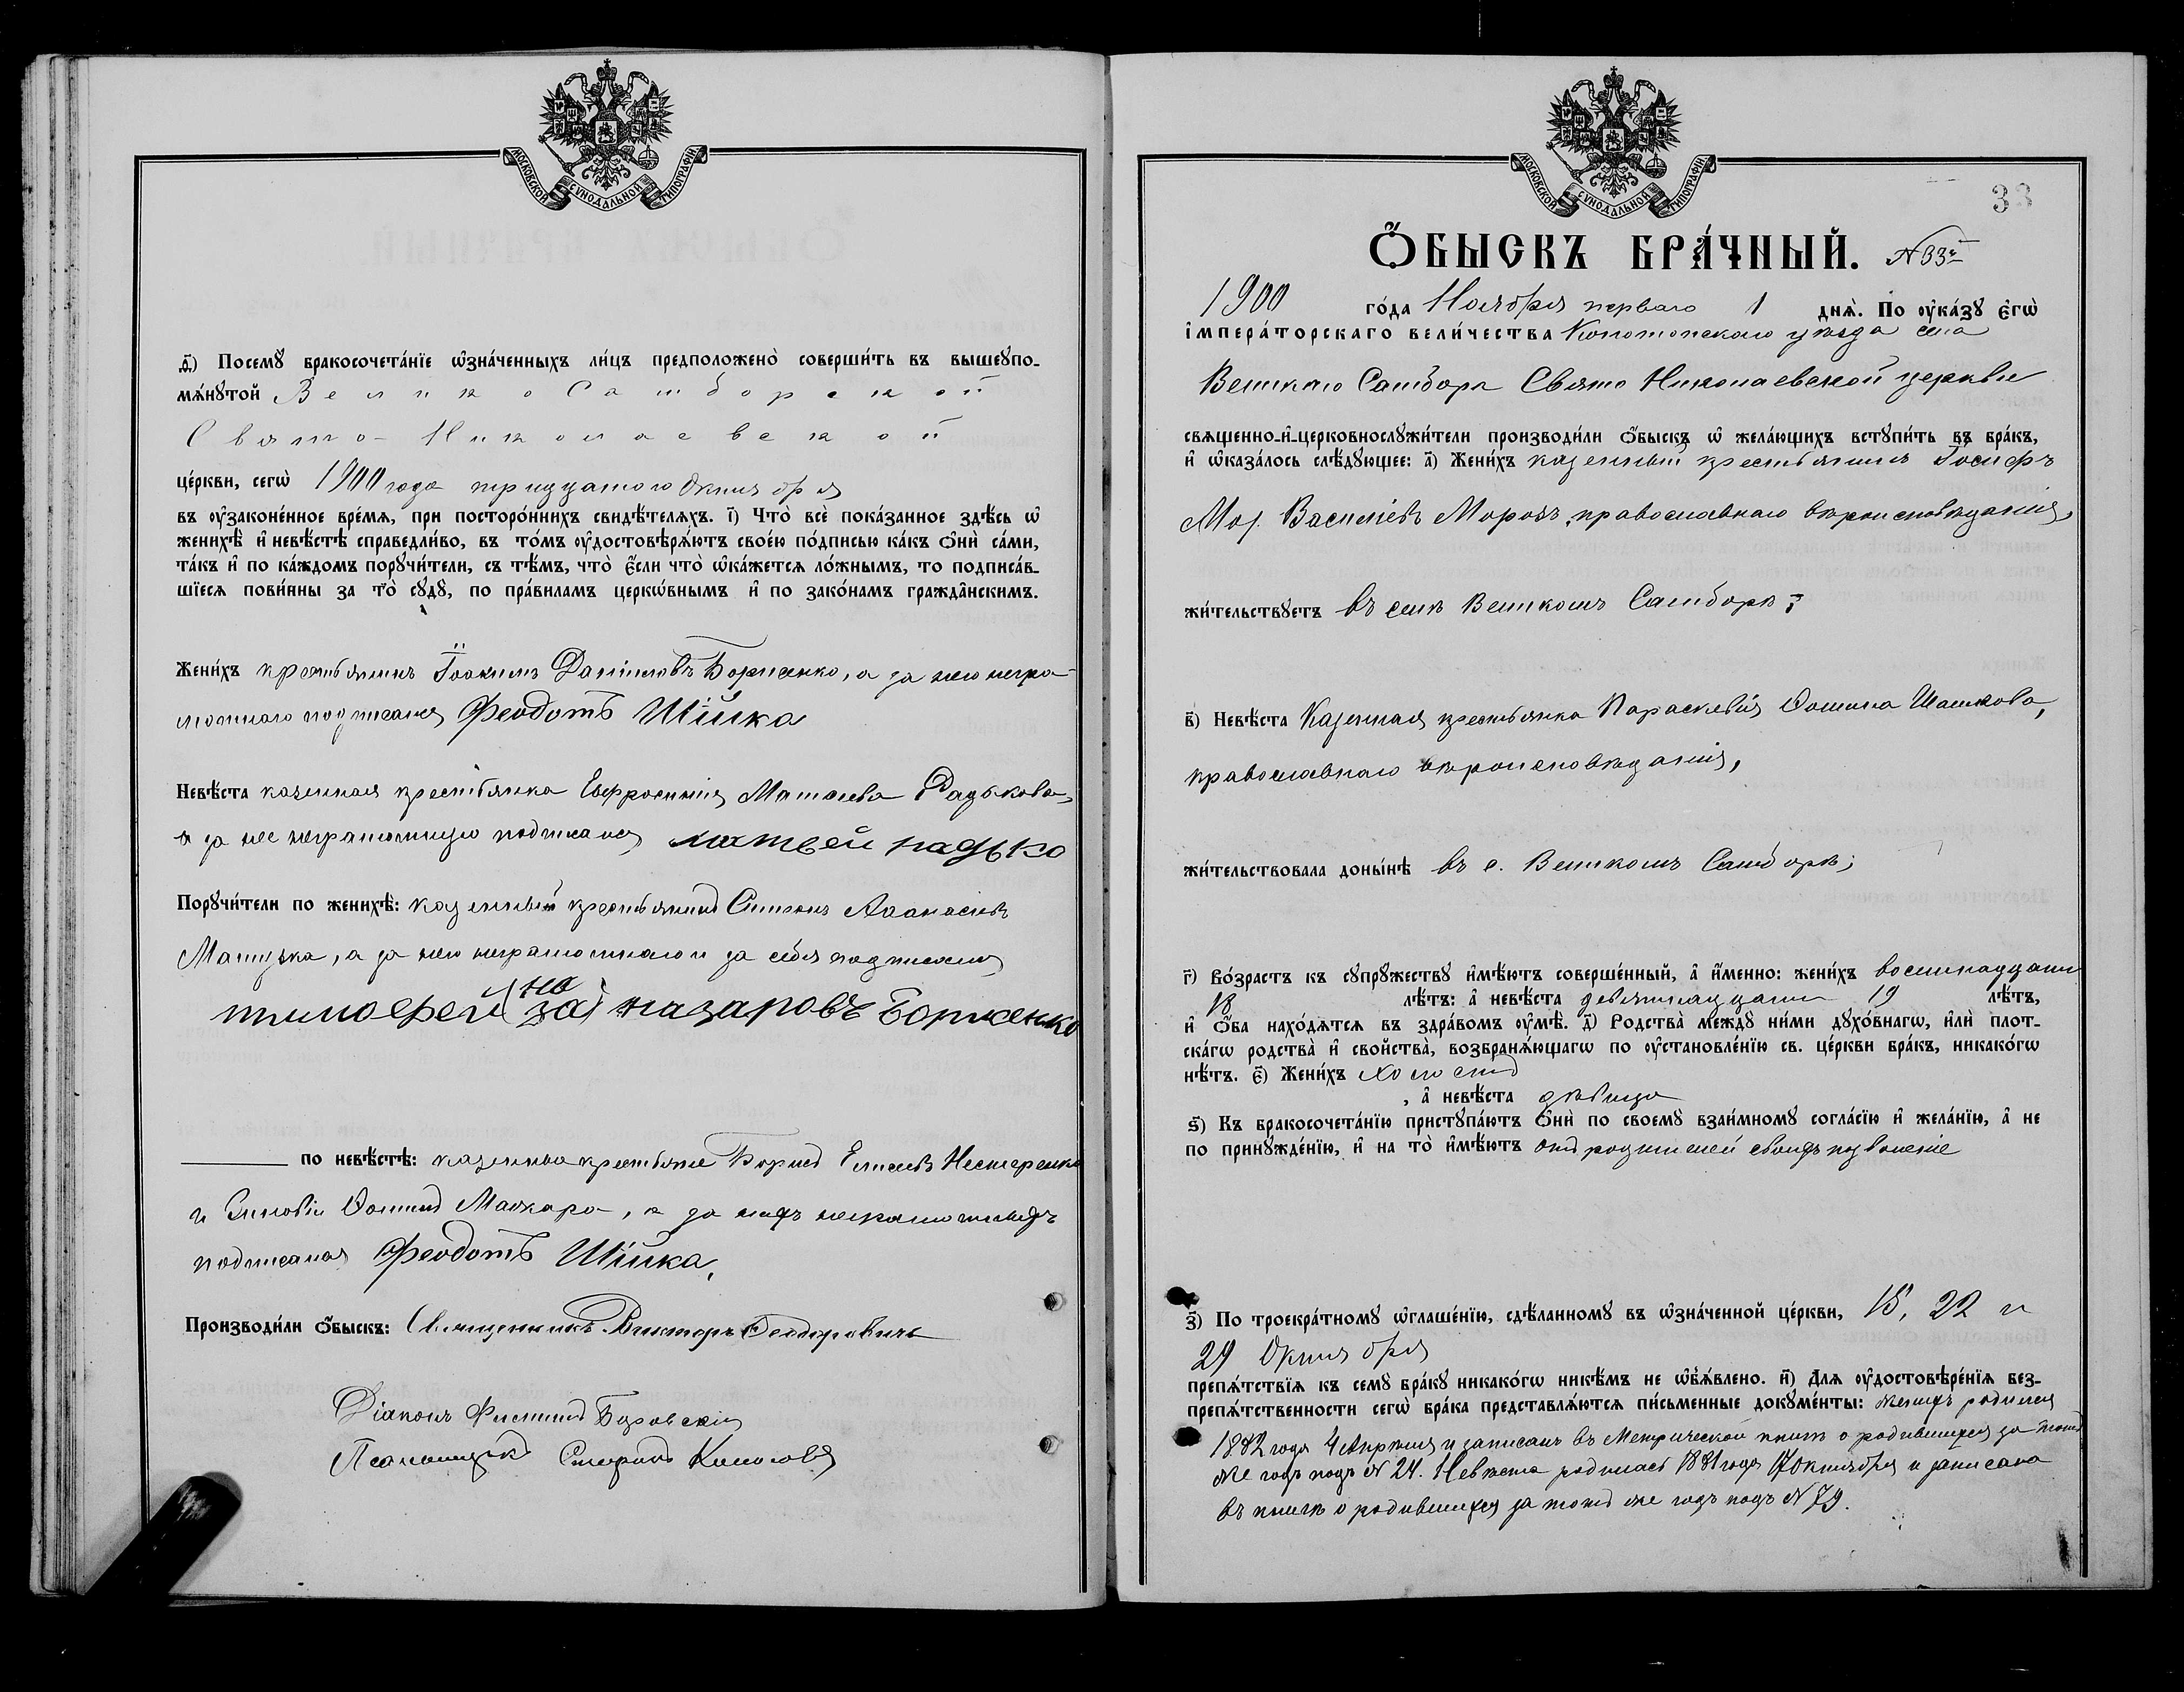 МОСКОВСКОЙ СѴНОДАЛЬНОЙ ТИПОГРАФІИ
ѳ҃) Посемꙋ̀ бракосочета́нїе ѡ҆зна́ченныхъ ли́цъ предположено̀ соверши́ть въ вышеꙋпо-
мѧ́нꙋтой Велико Самборской
Свято-Николаевской
це́ркви, сегѡ̀ 1900 года тридцатого Октября
въ ᲂу҆законе́нное вре́мѧ, при посторо́ннихъ свидѣ́телѧхъ. і҃) Что̀ всѐ пока́занное здѣ́сь ѡ҆
женихѣ̀ и҆ невѣ́стѣ справедли́во, въ то́мъ ᲂу҆достовѣрѧ́ютъ свое́ю по́дписью ка́къ ѻ҆нѝ са́ми,
та́къ и҆ по ка́ждомъ порꙋчи́тели, съ тѣ́мъ, что̀ є҆́сли что̀ ѡ҆ка́жетсѧ ло́жнымъ, то подписа́в-
шїесѧ пови́нны за то̀ сꙋдꙋ̀, по пра́виламъ церко́внымъ и҆ по зако́намъ гражда́нскимъ.
Жени́хъ крестьянинъ Іоакимъ Даніиловъ Борженко, а за него негра-
мотнаго подписался Феодотъ Шійка
Невѣ́ста казенная крестьянка Евфросинія Матѳеева Радькова,
а за нее неграмотную подписался матвей радько
Порꙋчи́тели по женихѣ̀: казенный крестьянинъ Симеонъ Аѳанасіевъ
Мацузка, а за него неграмотного и за себя подписался
тимофей (за) но назаровъ Борженко
по невѣ́стѣ: казенные крестьяне Борисъ Елисеевъ Нестеренко
и Зиновій Ѳоминъ Махкара, а за нихъ неграмотныхъ
подписался Феодотъ Шійка,
Производи́ли ѻ҆́быскъ: Священникъ Викторъ Ѳеодоровичъ
Діаконъ Филиппъ Боровскій
Псаломщикъ Стефанъ Колосовъ
МОСКОВСКОЙ СѴНОДАЛЬНОЙ ТИПОГРАФІИ
33
Ѻ҆́БЫСКЪ БРА́ЧНЫЙ. №33й
1900 го́да Ноября перваго 1 днѧ̀. По ᲂу҆ка́зꙋ є҆гѡ̀
і҆мпера́торскаго вели́чества Конотопскаго уѣзда села
Великаго Самбора Свято Николаевской церкви
свѧщенно-и҆-церковнослꙋжи́тели производи́ли ѻ҆́быскъ ѡ҆ жела́ющихъ встꙋпи́ть въ бра́къ,
и҆ ѡ҆каза́лось слѣ́дꙋющее: а҃) Жени́хъ казенный крестьянинъ Іосифъ
Мор. Василіевъ Морозъ, православнаго вѣроисповѣданія,
жи́тельствꙋетъ въ селѣ Великомъ Самборѣ;
в҃) Невѣ́ста Казенная крестьянка Параскевія Ѳомина Шашкова,
православнаго вѣроисповѣданія,
жи́тельствовала доны́нѣ въ с. Великомъ Самборѣ;
г҃) Во́зрастъ къ сꙋпрꙋ́жествꙋ и҆мѣ́ютъ соверше́нный, а҆ и҆́менно: жени́хъ восемнадцати
18 лѣ́тъ: а҆ невѣ́ста девятнадцати 19 лѣ́тъ,
и҆ ѻ҆́ба нахо́дѧтсѧ въ здра́вомъ ᲂу҆мѣ̀. д҃) Родства̀ междꙋ̀ ни́ми дꙋхо́внагѡ, и҆лѝ плот-
ска́гѡ родства̀ и҆ свойства̀, возбранѧ́ющагѡ по ᲂу҆становле́нїю св. це́ркви бра́къ, никако́гѡ
нѣ́тъ. є҃) Жени́хъ холостъ
, а҆ невѣ́ста дѣвица
ѕ҃) Къ бракосочета́нїю пристꙋпа́ютъ ѻ҆нѝ по своемꙋ̀ взаи́мномꙋ согла́сїю и҆ жела́нїю, а҆ не
по принꙋжде́нїю, и҆ на то̀ и҆мѣ́ютъ отъ родителей своихъ позволеніе
з҃) По троекра́тномꙋ ѡ҆глаше́нїю, сдѣ́ланномꙋ въ ѡ҆зна́ченной це́ркви, 15, 22 и
29 Октября
препѧ́тствїѧ къ семꙋ̀ бра́кꙋ никако́гѡ никѣ́мъ не ѡ҆б̾ѧ́влено. и҃) Длѧ ᲂу҆достовѣре́нїѧ без-
препѧ́тственности сегѡ̀ бра́ка представлѧ́ютсѧ пи́сьменные докꙋме́нты: женихъ родился
1882 года 4 Апрѣля и записанъ въ Метрической книгѣ о родившихся за тотъ
же годъ подъ № 24. Невѣста родилась 1881 года 17 Октября и записана
въ книгѣ о родившихся за тотъ же годъ подъ № 79.